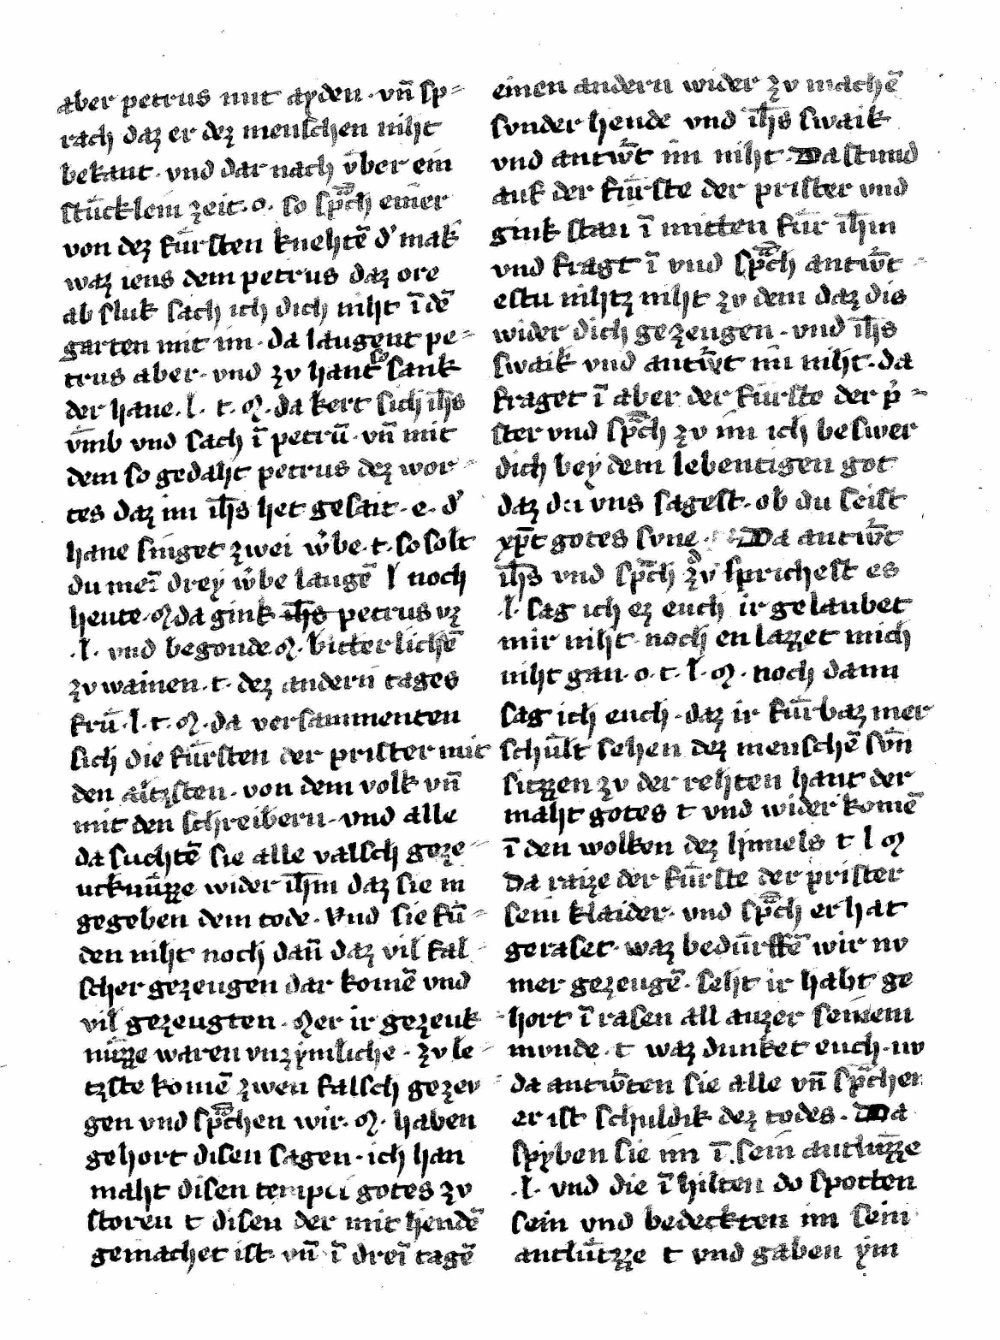 aber petrus mit ayden · vn̄ sp⸗
rach daz er dez menschen niht
bekant · vnd dar nach v̊ber ein
stu̍cklein zeit · o · so sp̄ch einer
von dez fu̍rsten knehtē d' mak
waz iens dem petrus daz ore
ab sluk sach ich dich niht ī dē
garten mit im · da laugent pe⸗
trus aber · vnd zv hant so sank
der hane · l · t · m · da kert sich ih̄s
vmb vnd sach ī petrū · vn̄ mit
dem so gedaht petrus dez wor⸗
tes daz im ih̄s het gesait · e · d'
hane singet zwei w̍be · t · so solt
du meī drey w̍be laugē l noch
heute · m da gink ih̄s petrus vz
· l · vnd begonde · m · bitterlichē
zv wainen · t · dez andern tages
fru̍ · l · t · m · da versammenten
sich die fu̍rsten der prister mit
den altzsten · von dem volk vn̄
mit den schreibern · vnd alle
da suchtē sie alle valsch geze⸗
ucknu̍zze wider ih̄m daz sie in
gegeben dem tode · Vnd sie fu̍⸗
den niht noch dan̄ daz vil fal⸗
scher gezeugen dar komē vnd
vil gezeugten · m er ir gezeuk⸗
nu̍zze waren vnzymliche · zv le⸗
tzste komē zwen falsch gezev⸗
gen vnd sp̄chen wir · m · haben
gehort disen sagen · ich han
maht disen tempel gotes zv
storen t disen der mit hendē
gemachet ist · vn̄ ī dreī tagē
einen andern wider zv machē
svnder hende vnd ih̄s swaik
vnd antw̍t im niht · Da stund
auf der fu̍rste der prister vnd
gink stan ī mitten fu̍r ih̄m
vnd fragt ī vnd sp̄ch antw̍t⸗
estu nihtz niht zv dem daz dis
wider dich gezeugen · vnd ih̄s
swaik vnd antw̍t im niht · da
fraget ī aber der fu̍rste der p̍⸗
ster vnd sp̄ch zv im ich beswer
dich bey dem lebentigen got
daz du vns sagest · ob du seist
xp̄c gotes svne · Da antw̍t
ih̄s vnd sp̄ch dv sprichest es
· l · sag ich ez euch ir gelaubet
mir niht noch en lazzet mich
niht gan · o · t · l · m · noch dann
sag ich euch · daz ir fu̍rbaz mer
schu̍lt sehen dez menschē svn
sitzzen zv der rehten hant der
maht gotes t vnd wider komē
ī den wolken dez himels t l m
Da raize der fu̍rste der prister
sein klaider · vnd sp̄ch er hat
geraset · waz bedu̍rffē wir nv
mer gezeugē · seht ir habt ge
hort ī rasen all auzer seinem
munde · t waz dunket euch · nv
da antw̍ten sie alle vn̄ sp̄chen
er ist schuldik dez todes · Da
spyben sie im ī sein antlu̍zze
· l · vnd die ī hilten do spotten
sein vnd bedeckten im sein
antlu̍tzze t vnd gaben ym